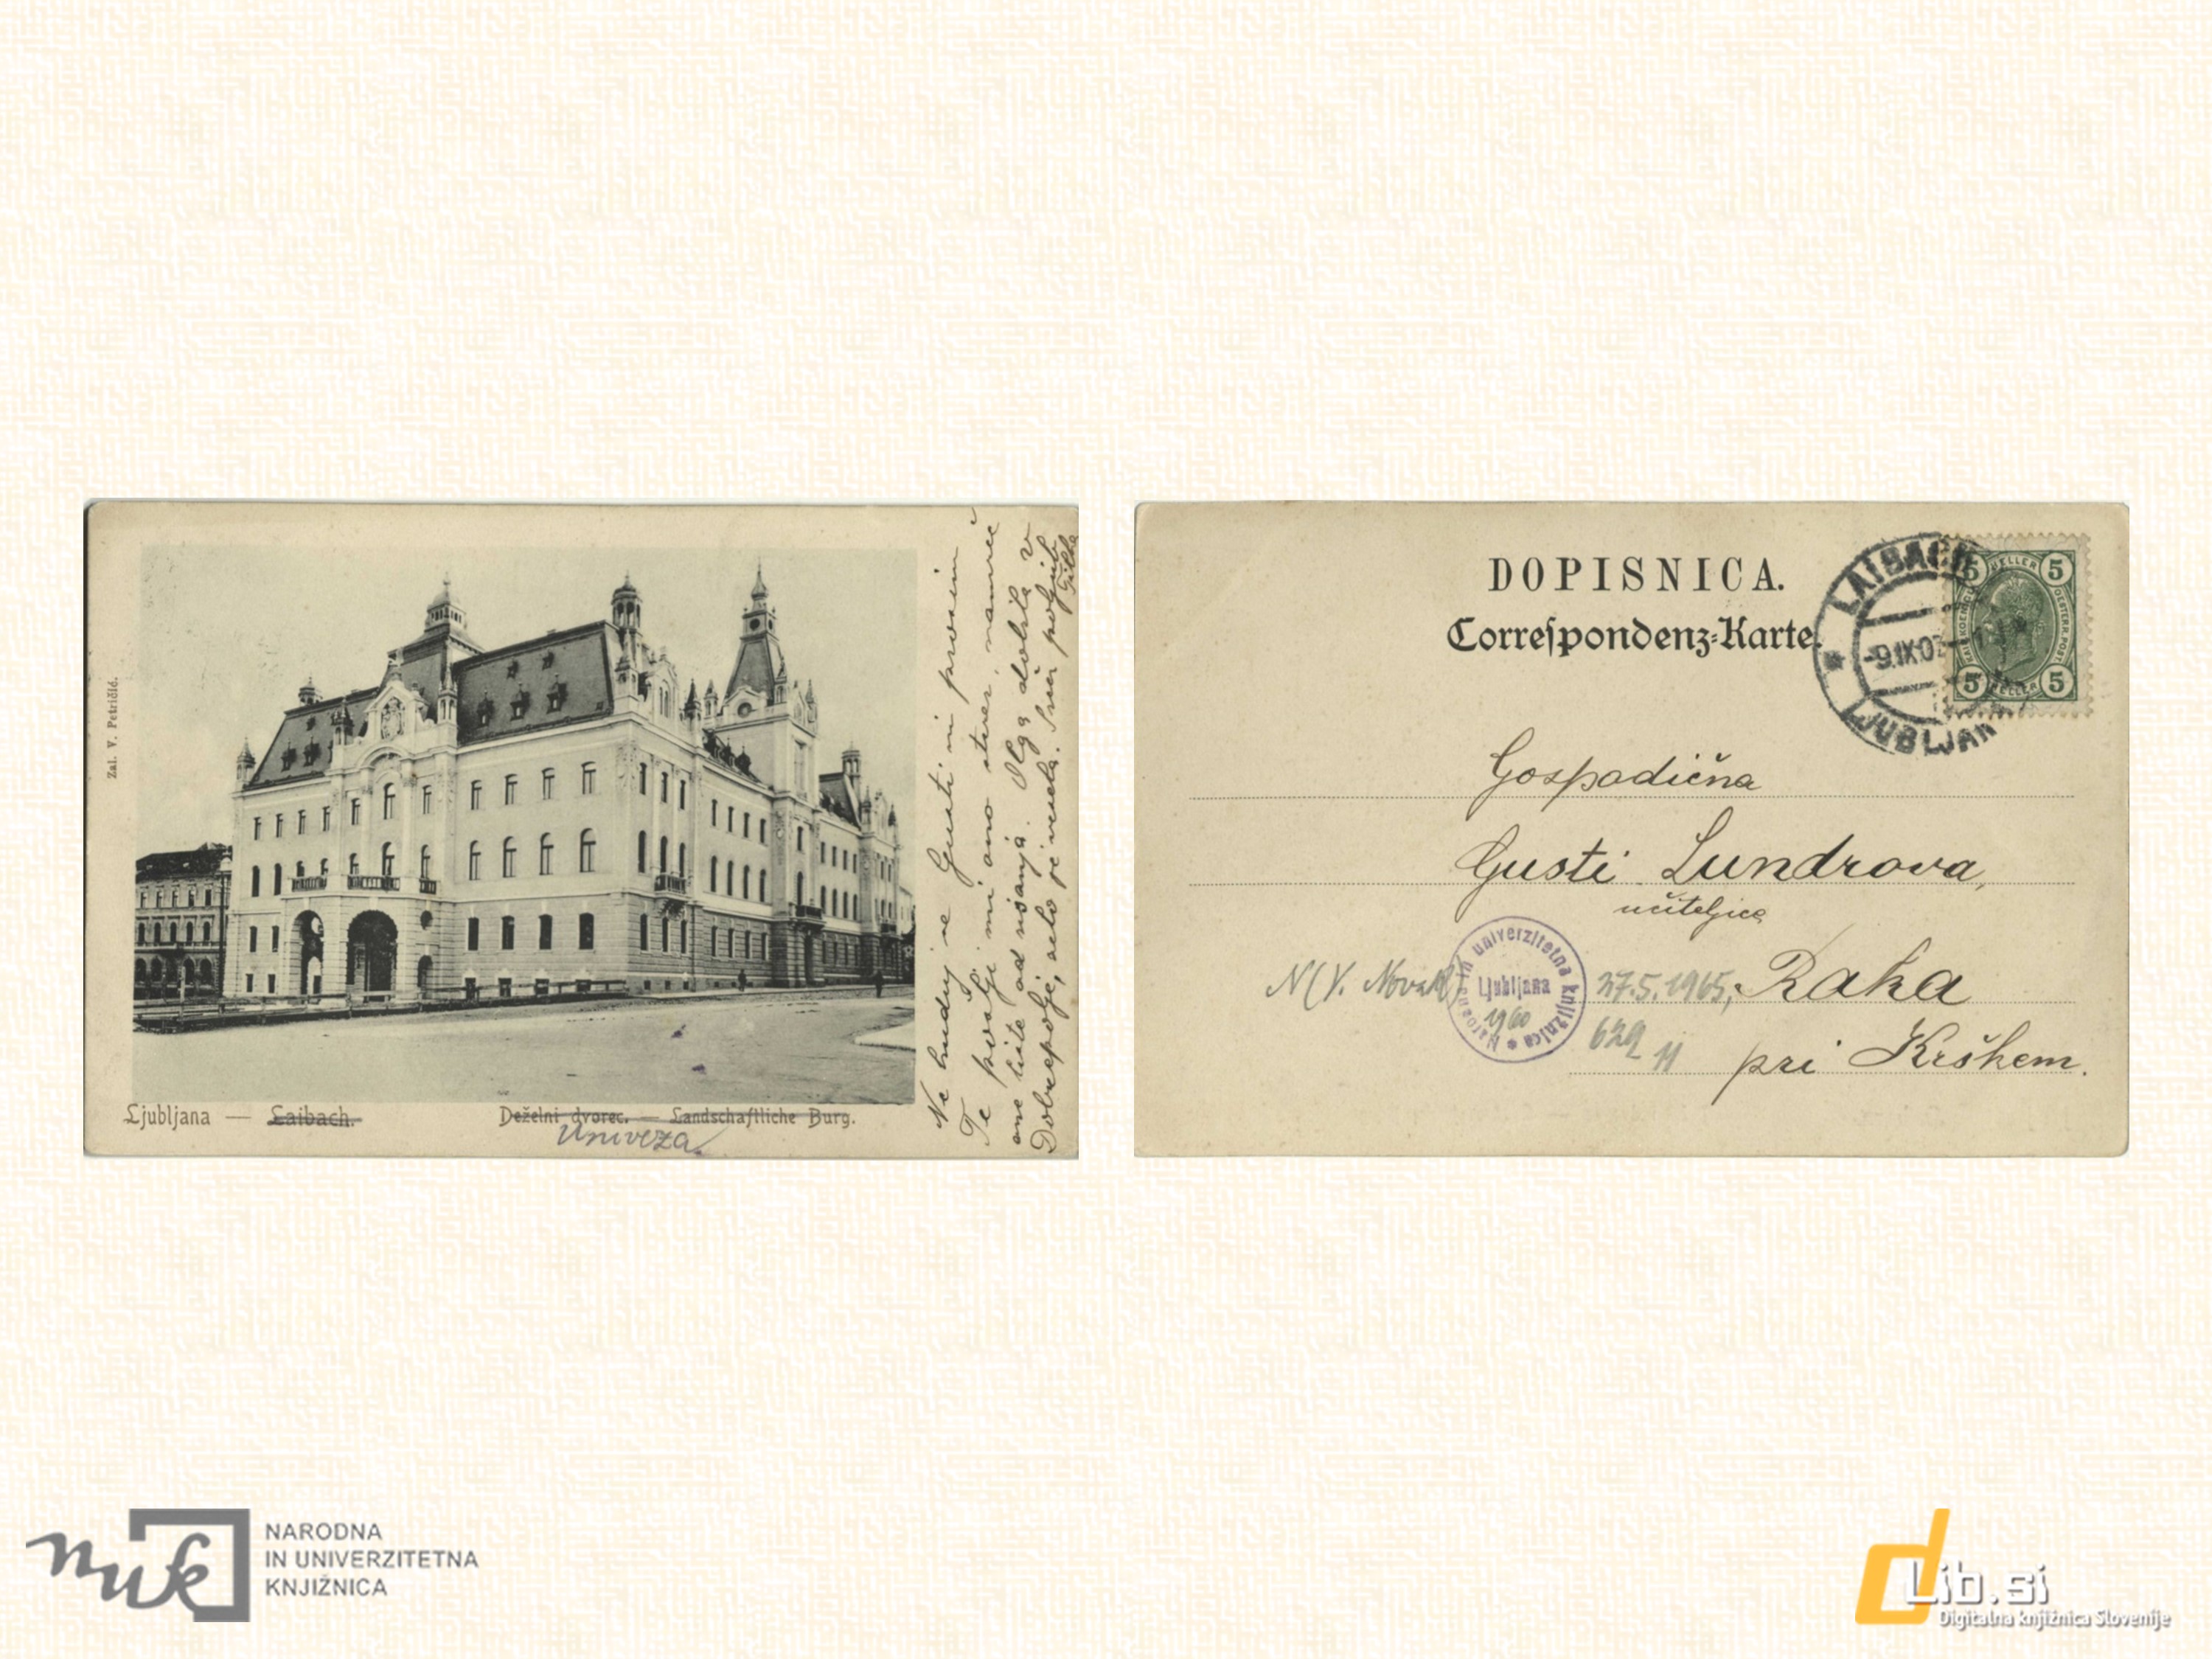 Zal. V. Petričić.
Ljubljana — Laibach.
Deželni dvorec. — Landschaftliche Burg.
Univeza
Ne huduj se Gusti in prosim
Te pošlji mi ono stvar, namreč
one liste od pisanja. Olga dobila v
Dobrepolje, zelo je vesela. Srčn poljub
DOPISNICA.
Correspondenz-Karte.
LAIBACH
-9.IX.0
LJUBLJAN
5 HELLER 5
5 HELLER 5
Gospodična
Gusti Lundrova,
učiteljica
Raka
pri Krškem.
N (V. Novak)
27.5.1965,
Narodna in univerzitetna knjižnica
Ljubljana
1960
629
11
nuk
NARODNA
IN UNIVERZITETNA
KNJIŽNICA
dLib.si
Digitalna knjižnica Slovenije